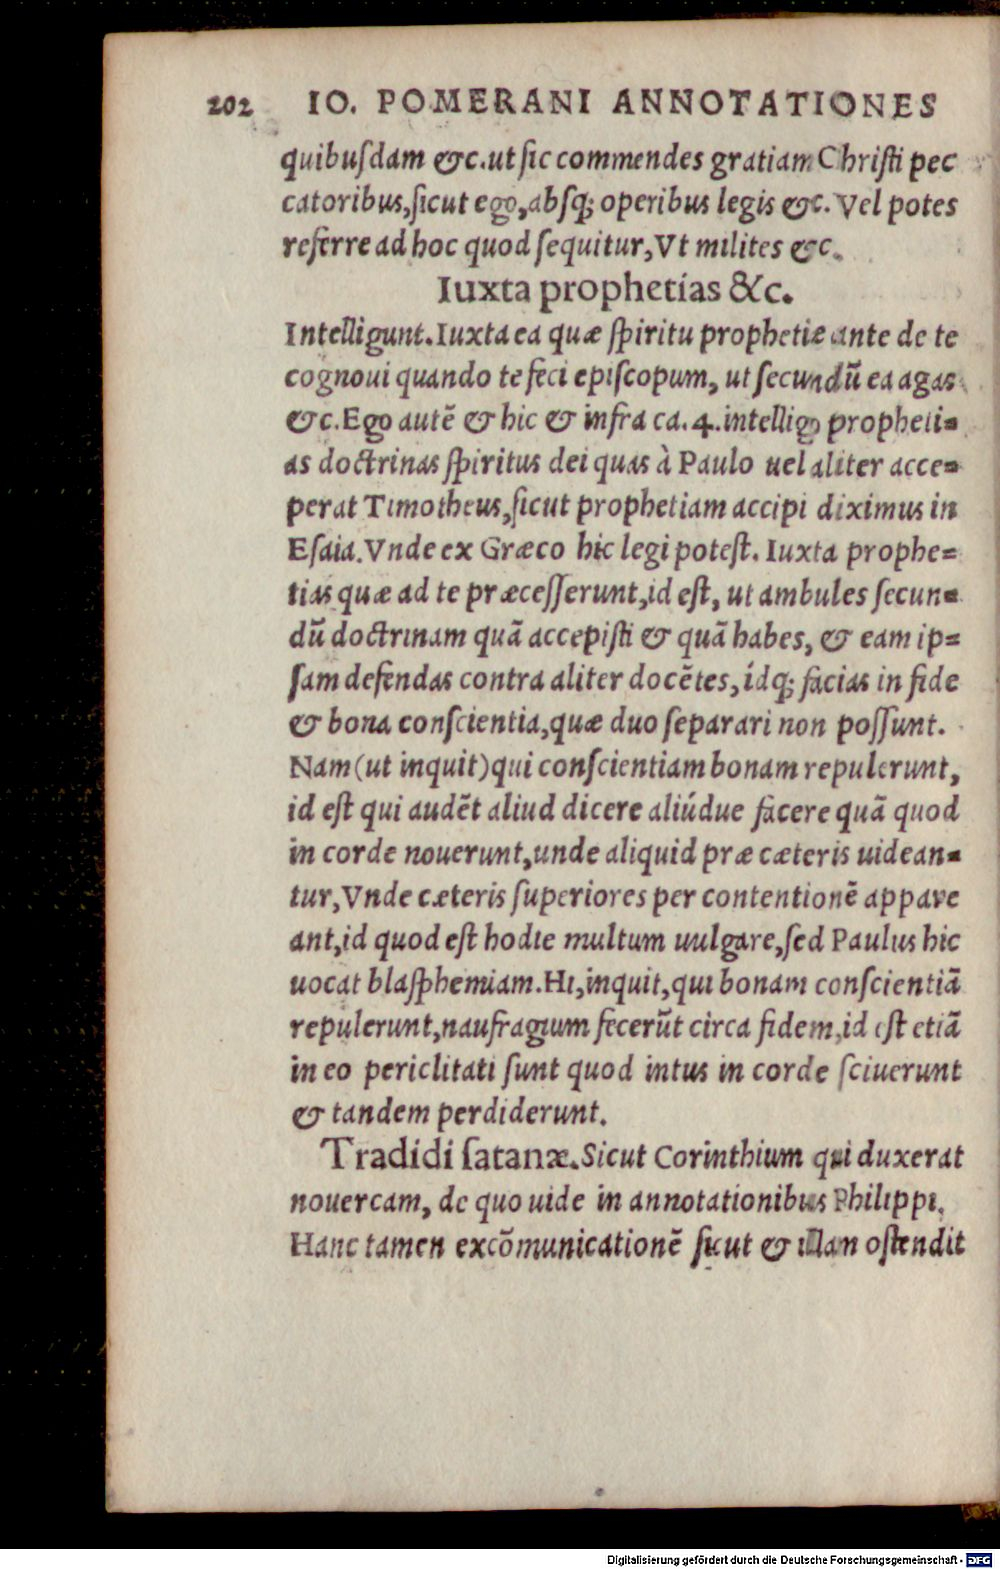 202 IO. POMERANI ANNOTATIONES
quibuſdam &c. ut ſic commendes gratiam Chriſti pec
catoribus, ſicut ego, abſq; operibus legis &c. Vel potes
referre ad hoc quod ſequitur, Vt milites &c.
Iuxta prophetías &c.
Intelligunt. Iuxta ea quæ ſpiritu prophetiæ ante de te
cognoui quando te feci epiſcopum, ut ſecundũ ea agas
&c. Ego autẽ & hic & infra ca. 4. intelligo propheti=
as doctrinas ſpiritus dei quas à Paulo uel aliter acce=
perat Timotheus, ſicut prophetiam accipi diximus in
Eſaia. Vnde ex Græco hic legi poteſt. Iuxta prophe=
tias quæ ad te præceſſerunt, id eſt, ut ambules ſecun=
dũ doctrinam quã accepiſti & quã habes, & eam ip=
ſam defendas contra aliter docẽtes, ídq; facias in fide
& bona conſcientia, quæ duo ſeparari non poſſunt.
Nam (ut inquit) qui conſcientiam bonam repulerunt,
id eſt qui audẽt aliud dicere aliúdue facere quã quod
in corde nouerunt, unde aliquid præ cæteris uidean=
tur, Vnde cæteris ſuperiores per contentionẽ appare
ant, id quod eſt hodie multum uulgare, ſed Paulus hic
uocat blaſphemiam. Hi, inquit, qui bonam conſcientiã
repulerunt, naufragium fecerũt circa fidem, id eſt etiã
in eo periclitati ſunt quod intus in corde ſciuerunt
& tandem perdiderunt.
Tradidi ſatanæ. Sicut Corinthium qui duxerat
nouercam, de quo uide in annotationibus Philippi.
Hanc tamen excõmunicationẽ ſicut & illam oſtendit
Digitalisierung gefördert durch die Deutsche Forschungsgemeinschaft - DFG